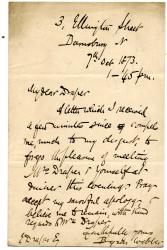 3, Ellington Street
Barnsbury N
7th Oct 1873.
1-45 p.m.
My dear Draper
A letter which I received
a few minutes since compels
me much to my disgust, to
forego the pleasure of meeting
Mrs Draper & yourself at
dinner this evening. Pray
accept my heartfelt apology &
believe me to remain, with kind
regards to Mrs Draper,
faithfully yours
E Draper Esq.